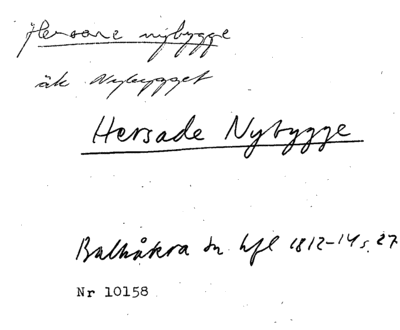 Hersare nybygge
äk Nybygget
Hersade Nybygge
Balkåkra sn hfl 1812-14 s. 27
Nr 10158